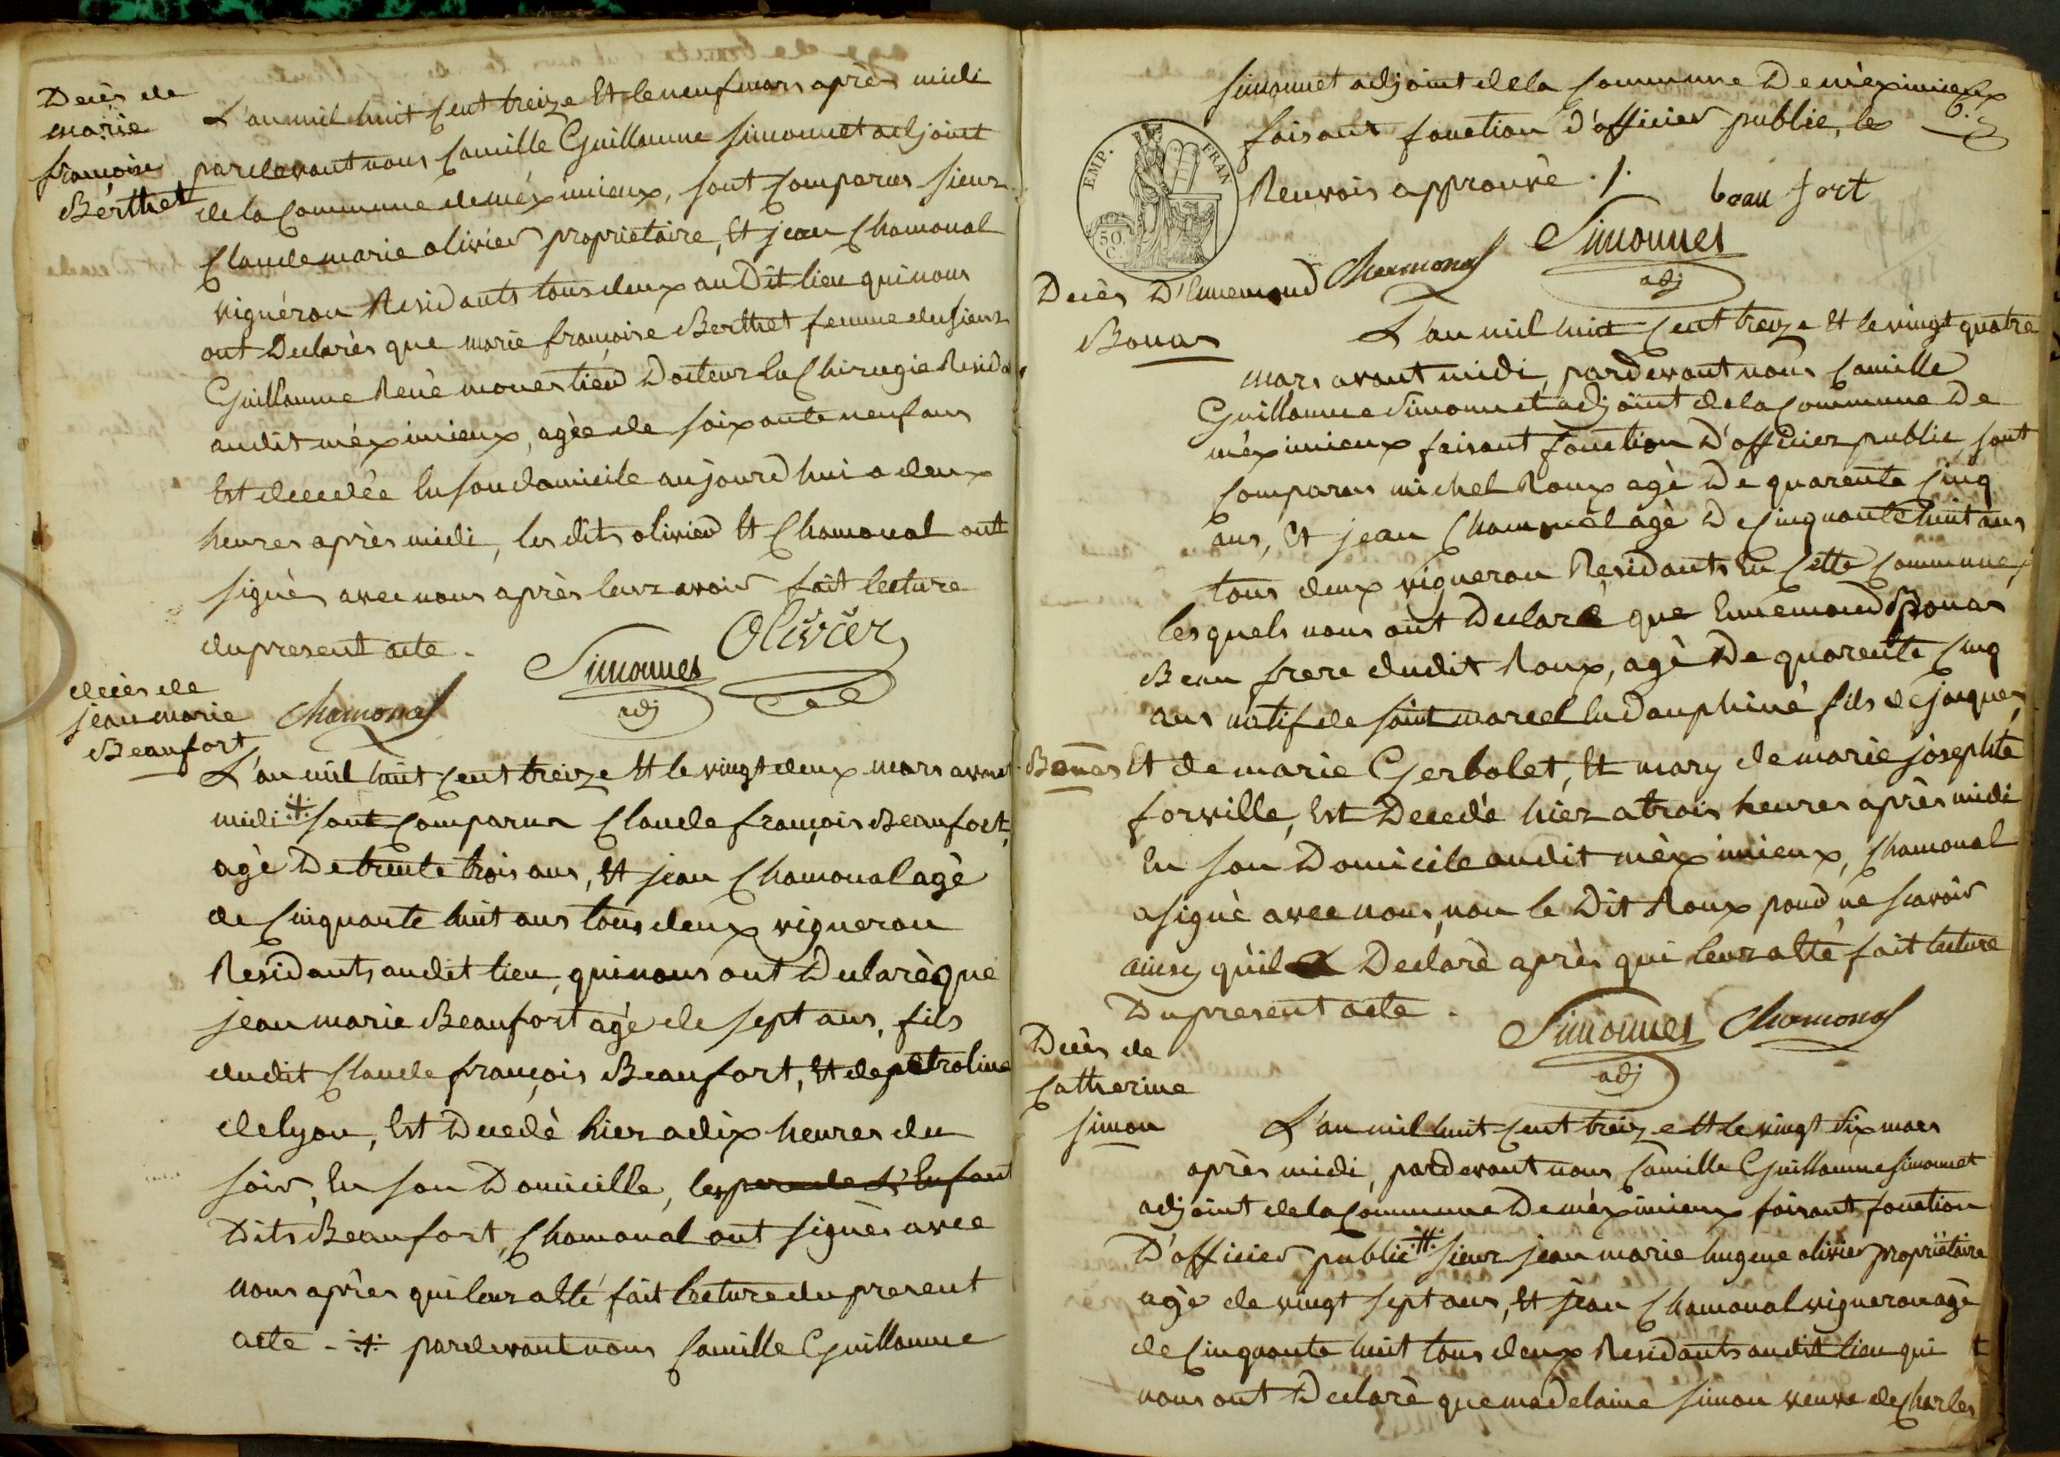 Decès de
marie
françoise
Bérthet
L'an mil huit cent treize Et le neuf mars après midi
pardevant nous Camille Guillaume Simonnet adjoint
de la Commune de méximieux, sont Comparus sieur
Claude marie olivier proprietaire, Et jean Chamonal
vignéron Residants tous deux au Dit lieu qui nous
ont Declarès que marie françoise Berthet femme du sieur
Guillaume Renè monestier Docteur En Chirugie Resid
audit méximieux, agèe de soixante neuf ans
Est decedèe En son domicile aujourd'hui a deux
heures après midi, les dits olivier Et Chamonal ont
signès avec nous après leur avoir fait lecture
du present acte.
Simonnet
adj
Olivier
Chamonal
decès de
jean marie
Beaufort
L'an mil huit cent treize Et le vingt deux mars avant
midi ⁜ sont Comparus Claude françois Beaufort,
agè De trente trois ans, Et jean Chamonal agè
de Cinquante huit ans tous deux vigneron
Residants audit lieu, qui nous ont Declarè que
jean marie Beaufort agè de sept ans, fils
dudit Claude françois Beaufort, Et de petroline
delyon, Est Decedè hier a dix heures du
soir, En son Domicille, les pere de L'Enfant
Dits Beaufort, Chamonal ont signès avec
nous après qui leur a Eté fait lecture du present
acte - ⁜ pardevant nous Camille Guillaume
simonnet adjoint de la Commune De méximieux
faisant fonction d'officier public, le
Renvois approuvè ./.
6.
EMP. FRAN
50 C.
beau fort
Simonnet
adj
Chamonal
Decès D'Ennemond
Bonas
L'an mil huit cent treize Et le vingt quatre
mars avant midi, pardevant nous Camille
Guillaume Simonnet adjoint de la Commune De
méximieux faisant fonction D'officier public, sont
Comparus michel Roux agè De quarente Cinq
ans, Et jean Chamonal agè De Cinquante huit ans
tous deux vigneron Residants En Cette Commune,
lesquels nous ont Declarè que Ennemond Bonas
Beau frere dudit Roux, agè De quarente Cinq
ans natif de saint marcel En Dauphiné fils de jaques
Bonas Et de marie Gerbolet, Et mary de marie josephte
forville, Est Decedè hier a trois heures après midi
En son Domicile audit mèximieux, Chamonal
a signè avec nous, non le Dit Roux pour ne scavoir
ainsy qu'il a Declarè après qui leur a Eté fait lecture
Du present acte.
Simonnet
adj
Chamonal
Decès de
Catherine
simon
L'an mil huit cent treize Et le vingt six mars
après midi, pardevant nous Camille Guillaume Simonnet
adjoint de la Commune De méximieux faisant fonction
D'officier public ⁜ sieur jean marie Eugene olivier proprietaire
agè de vingt sept ans, Et jean Chamonal vigneron agè
de Cinquante huit tous deux Residants audit lieu qui
nous ont Declarè que madelaine simon veuve de Charles